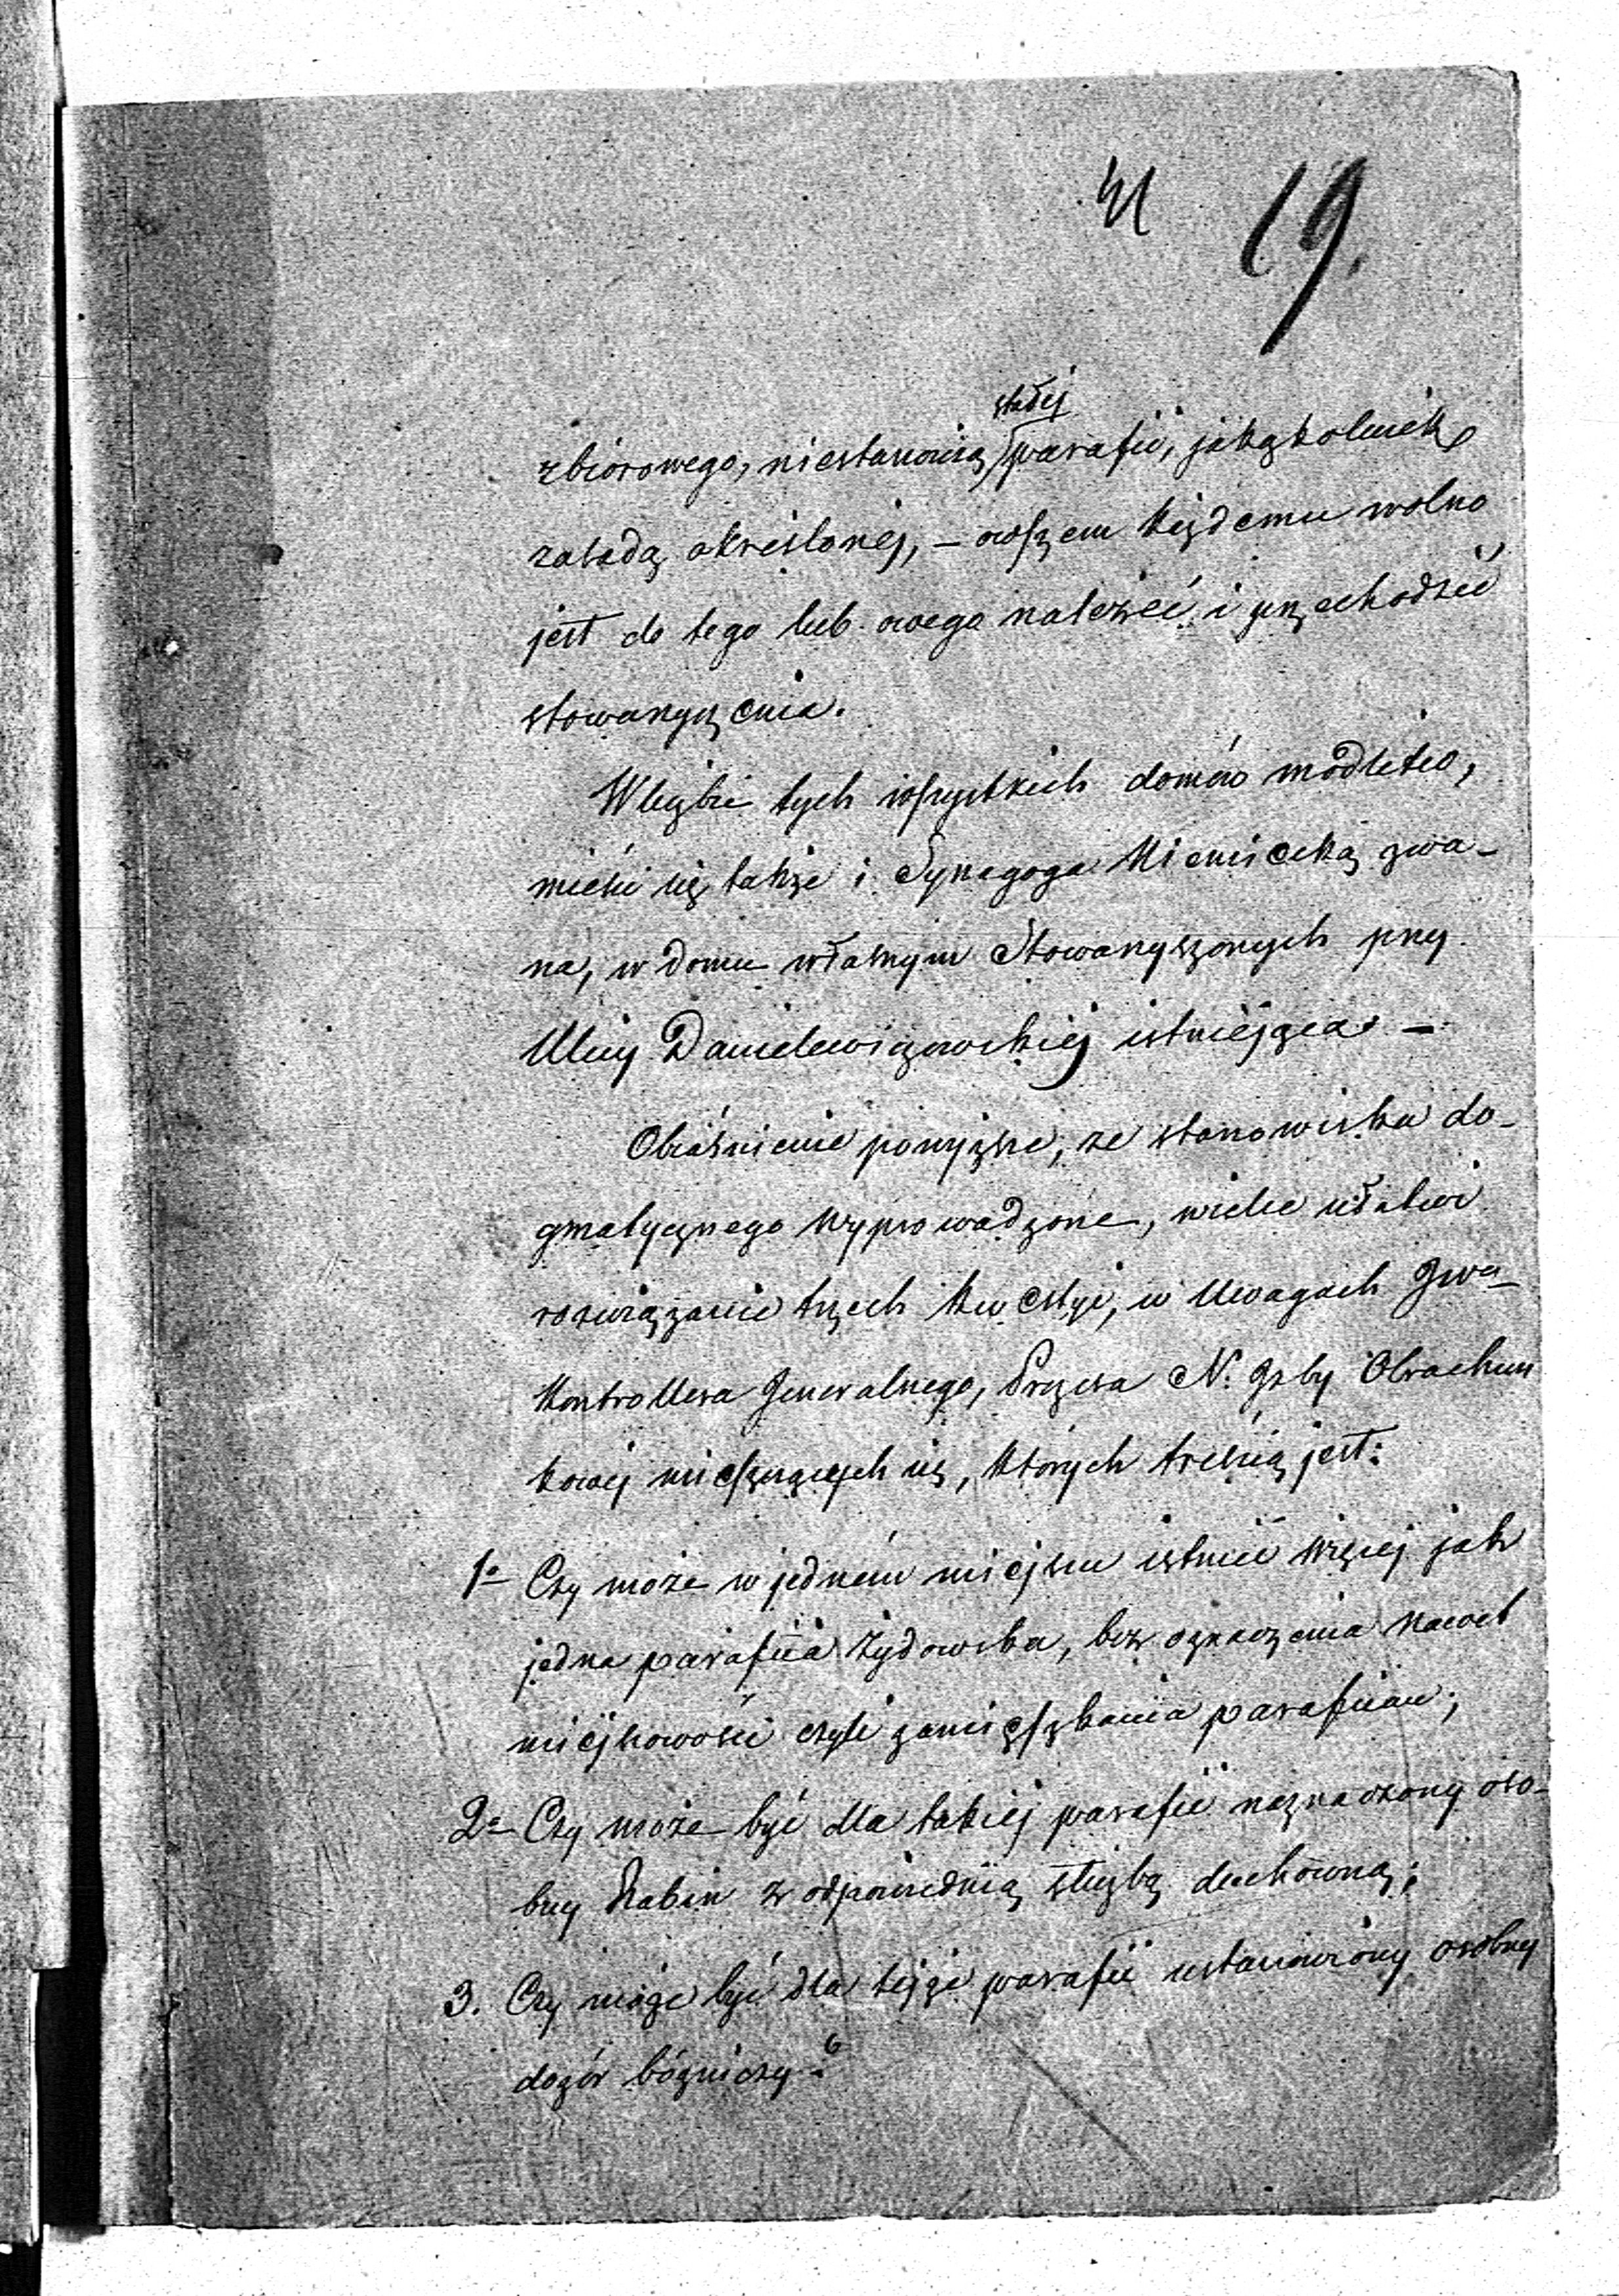 19.
stałej
zbiorowego, niestanowią parafii, jakąkolwiek
zasadą określonej, – owszem każdemu wolno
jest do tego lub owego należeć i przechodzić
stowarzyszenia.
W liczbie tych wszystkich domów modlitw,
mieści się także i Synagoga Niemiecką zwa-
na, w domu własnym Stowarzyszonych przy
Ulicy Danielewiczowskiej istniejąca. –
Obiaśnienie powyższe, ze stanowiska do-
gmatycznego wyprowadzone, wielce ułatwi
rozwiązanie trzech kwestyi, w Uwagach
Kontrollera Generalnego, Prezesa N. Izby Obrachun
kowej mieszczących się, których treścią jest:
1o Czy może w jedném miejscu istnieć więcej jak
jedna parafiia żydowska, bez oznaczenia nawet
miejscowości czyli zamieszkania parafiian;
2o Czy może być dla takiej parafii naznaczony oso-
bny Rabin z odpowiednią służbą duchowną;
3. Czy może być dla tejże parafii ustanowiony osobny
dozór bóżniczy?